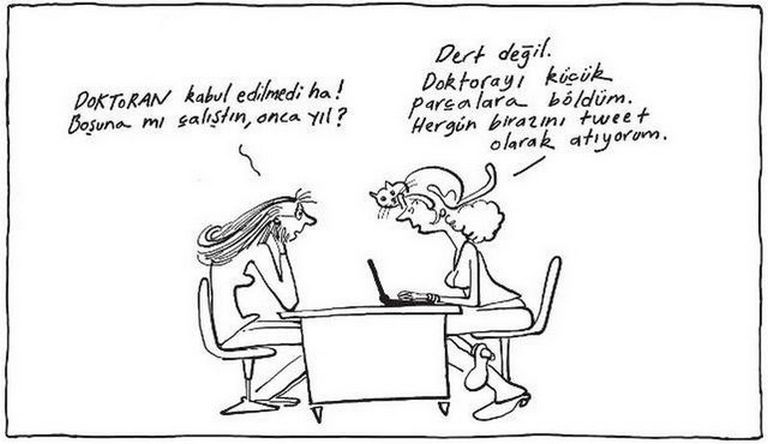 DOKTORAN kabul edilmedi ha!
Boşuna mı çalıştın, onca yıl?
Dert değil.
Doktorayı küçük
parçalara böldüm.
Hergün birazını tweet
olarak atıyorum.